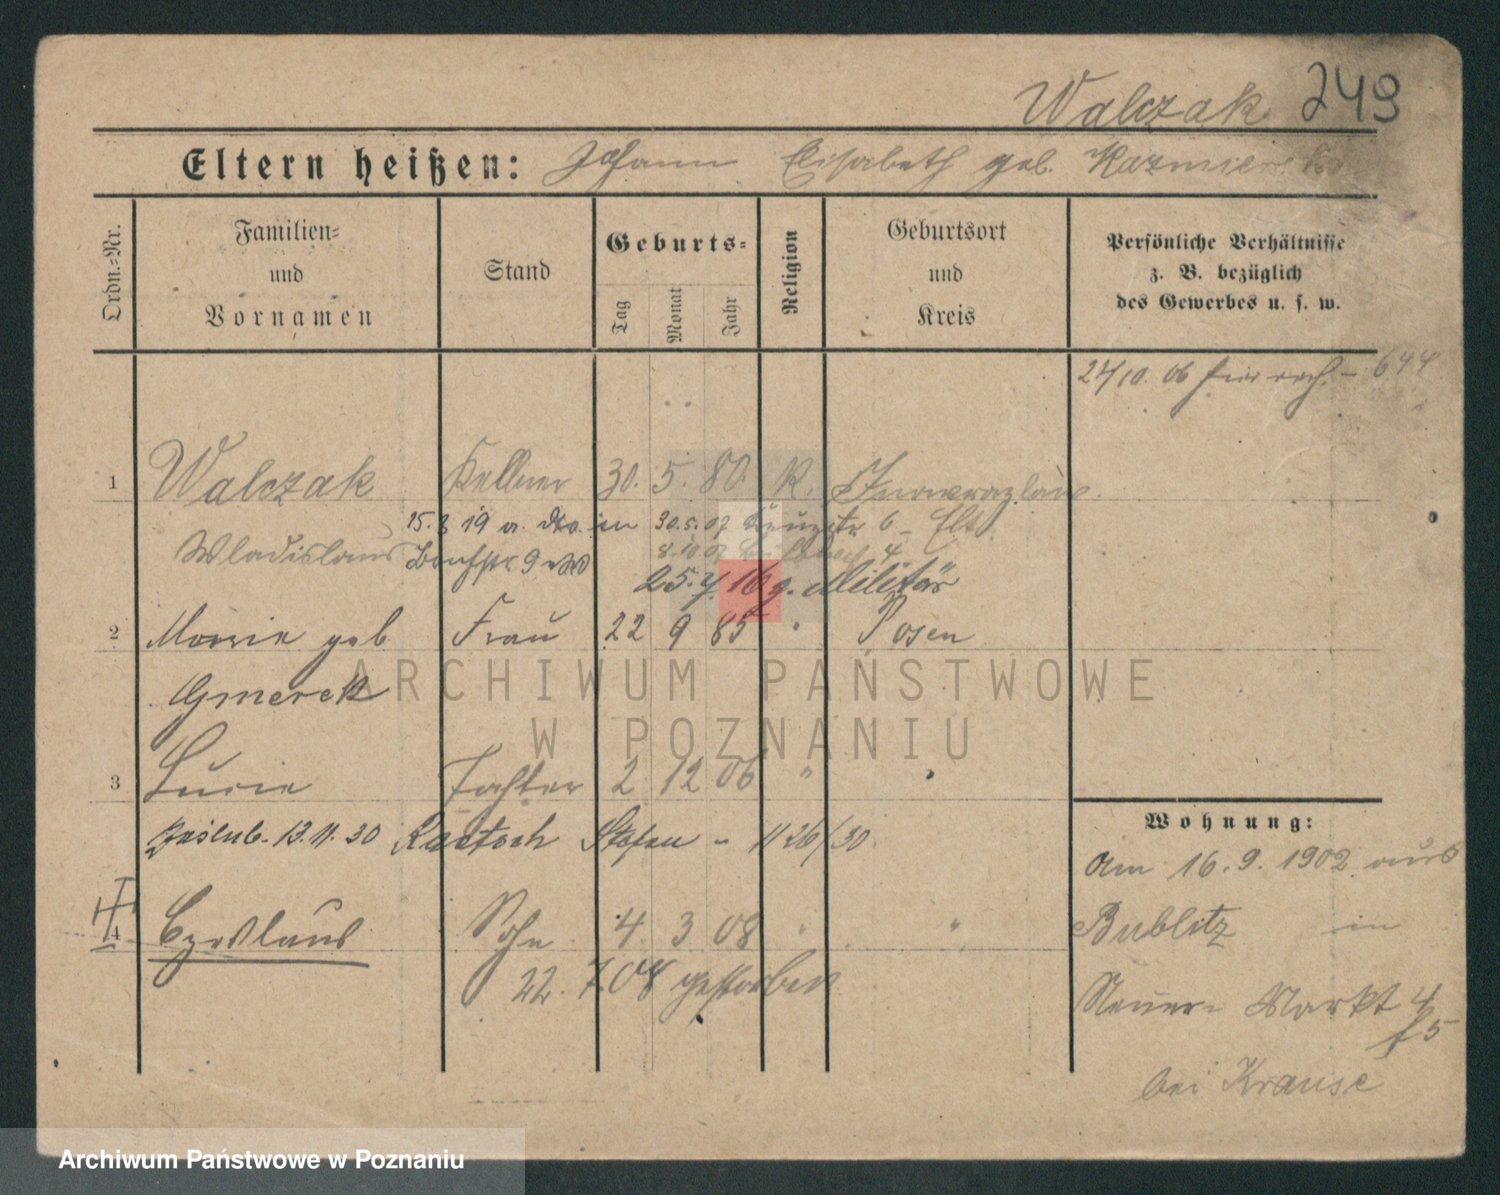 Walczak 249
Eltern heißen: Johann Elisabeth geb. Kazmierska
Ordn.=Nr.
Familien=
und
Vornamen
Stand
Geburts=
Tag
Monat
Jahr
Religion
Geburtsort
und
Kreis
Persönliche Verhältnisse
z. B. bezüglich
des Gewerbes u. s. w.
27/10. 06 644
1 Walczak Kellner 30. 5. 80. K. Inowrazlaw.
15. 8 19 a. in 30.5.07 6 Elt.
Wladislaus 9 8.10.07 4
25. 7. 16 z. Militär
2 Marie geb Frau 22 9 85 " Posen
Gmerek
3 Lucie Tochter 2 12 06 " "
13.11.30 Stefan - 1126/30.
4 Czeslaus Sohn 4. 3 08 " "
22. 7 08 gestorben
Wohnung:
Am 16. 9. 1902 aus
Bublitz in
Neuer Markt 4
f 5
bei Krause
ARCHIWUM PAŃSTWOWE
W POZNANIU
Archiwum Państwowe w Poznaniu